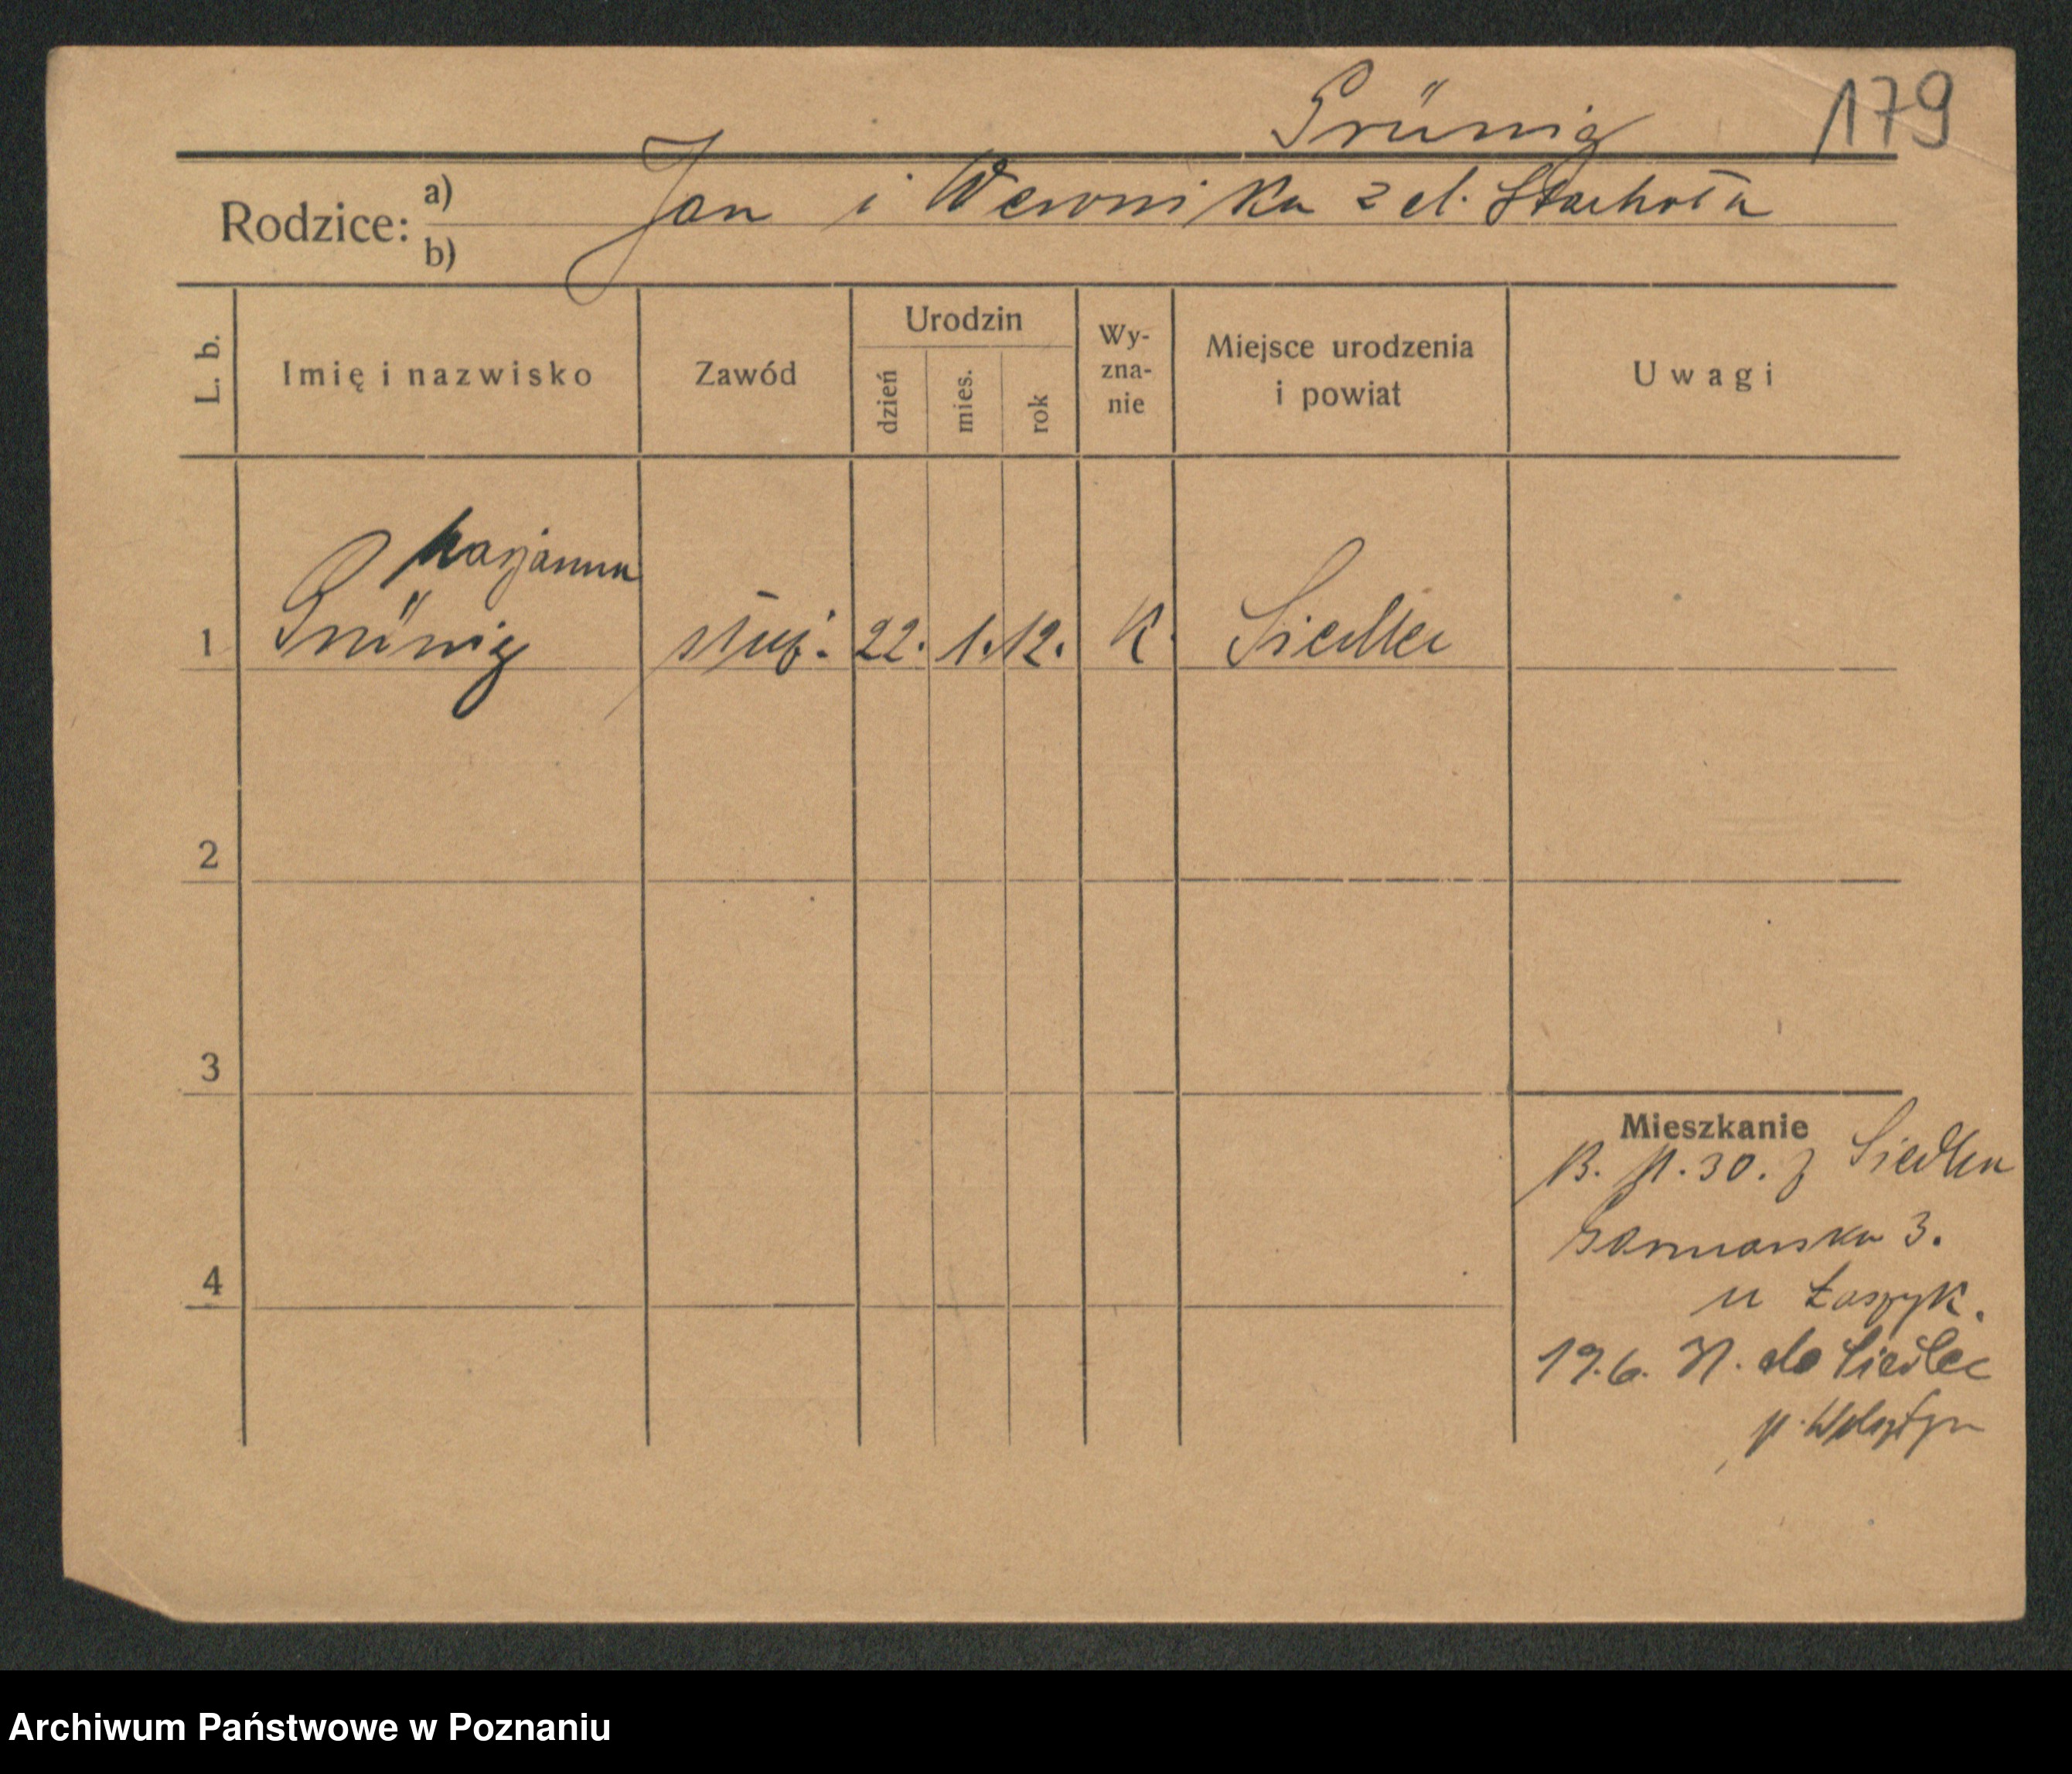 Grünig 179
Rodzice: a) Jan i Weronika z d. Stachoła
b)
L. b. Imię i nazwisko Zawód Urodzin dzień mies. rok Wy-zna-nie Miejsce urodzenia i powiat Uwagi
Marjanna
1 Grünig służ. 22. 1. 12. K. Siedlec
2
3
Mieszkanie
13. 11. 30. z Siedlca
Garncarska 3.
4
u
19. 6. 31. do Siedlec
p. Wolsztyn
Archiwum Państwowe w Poznaniu